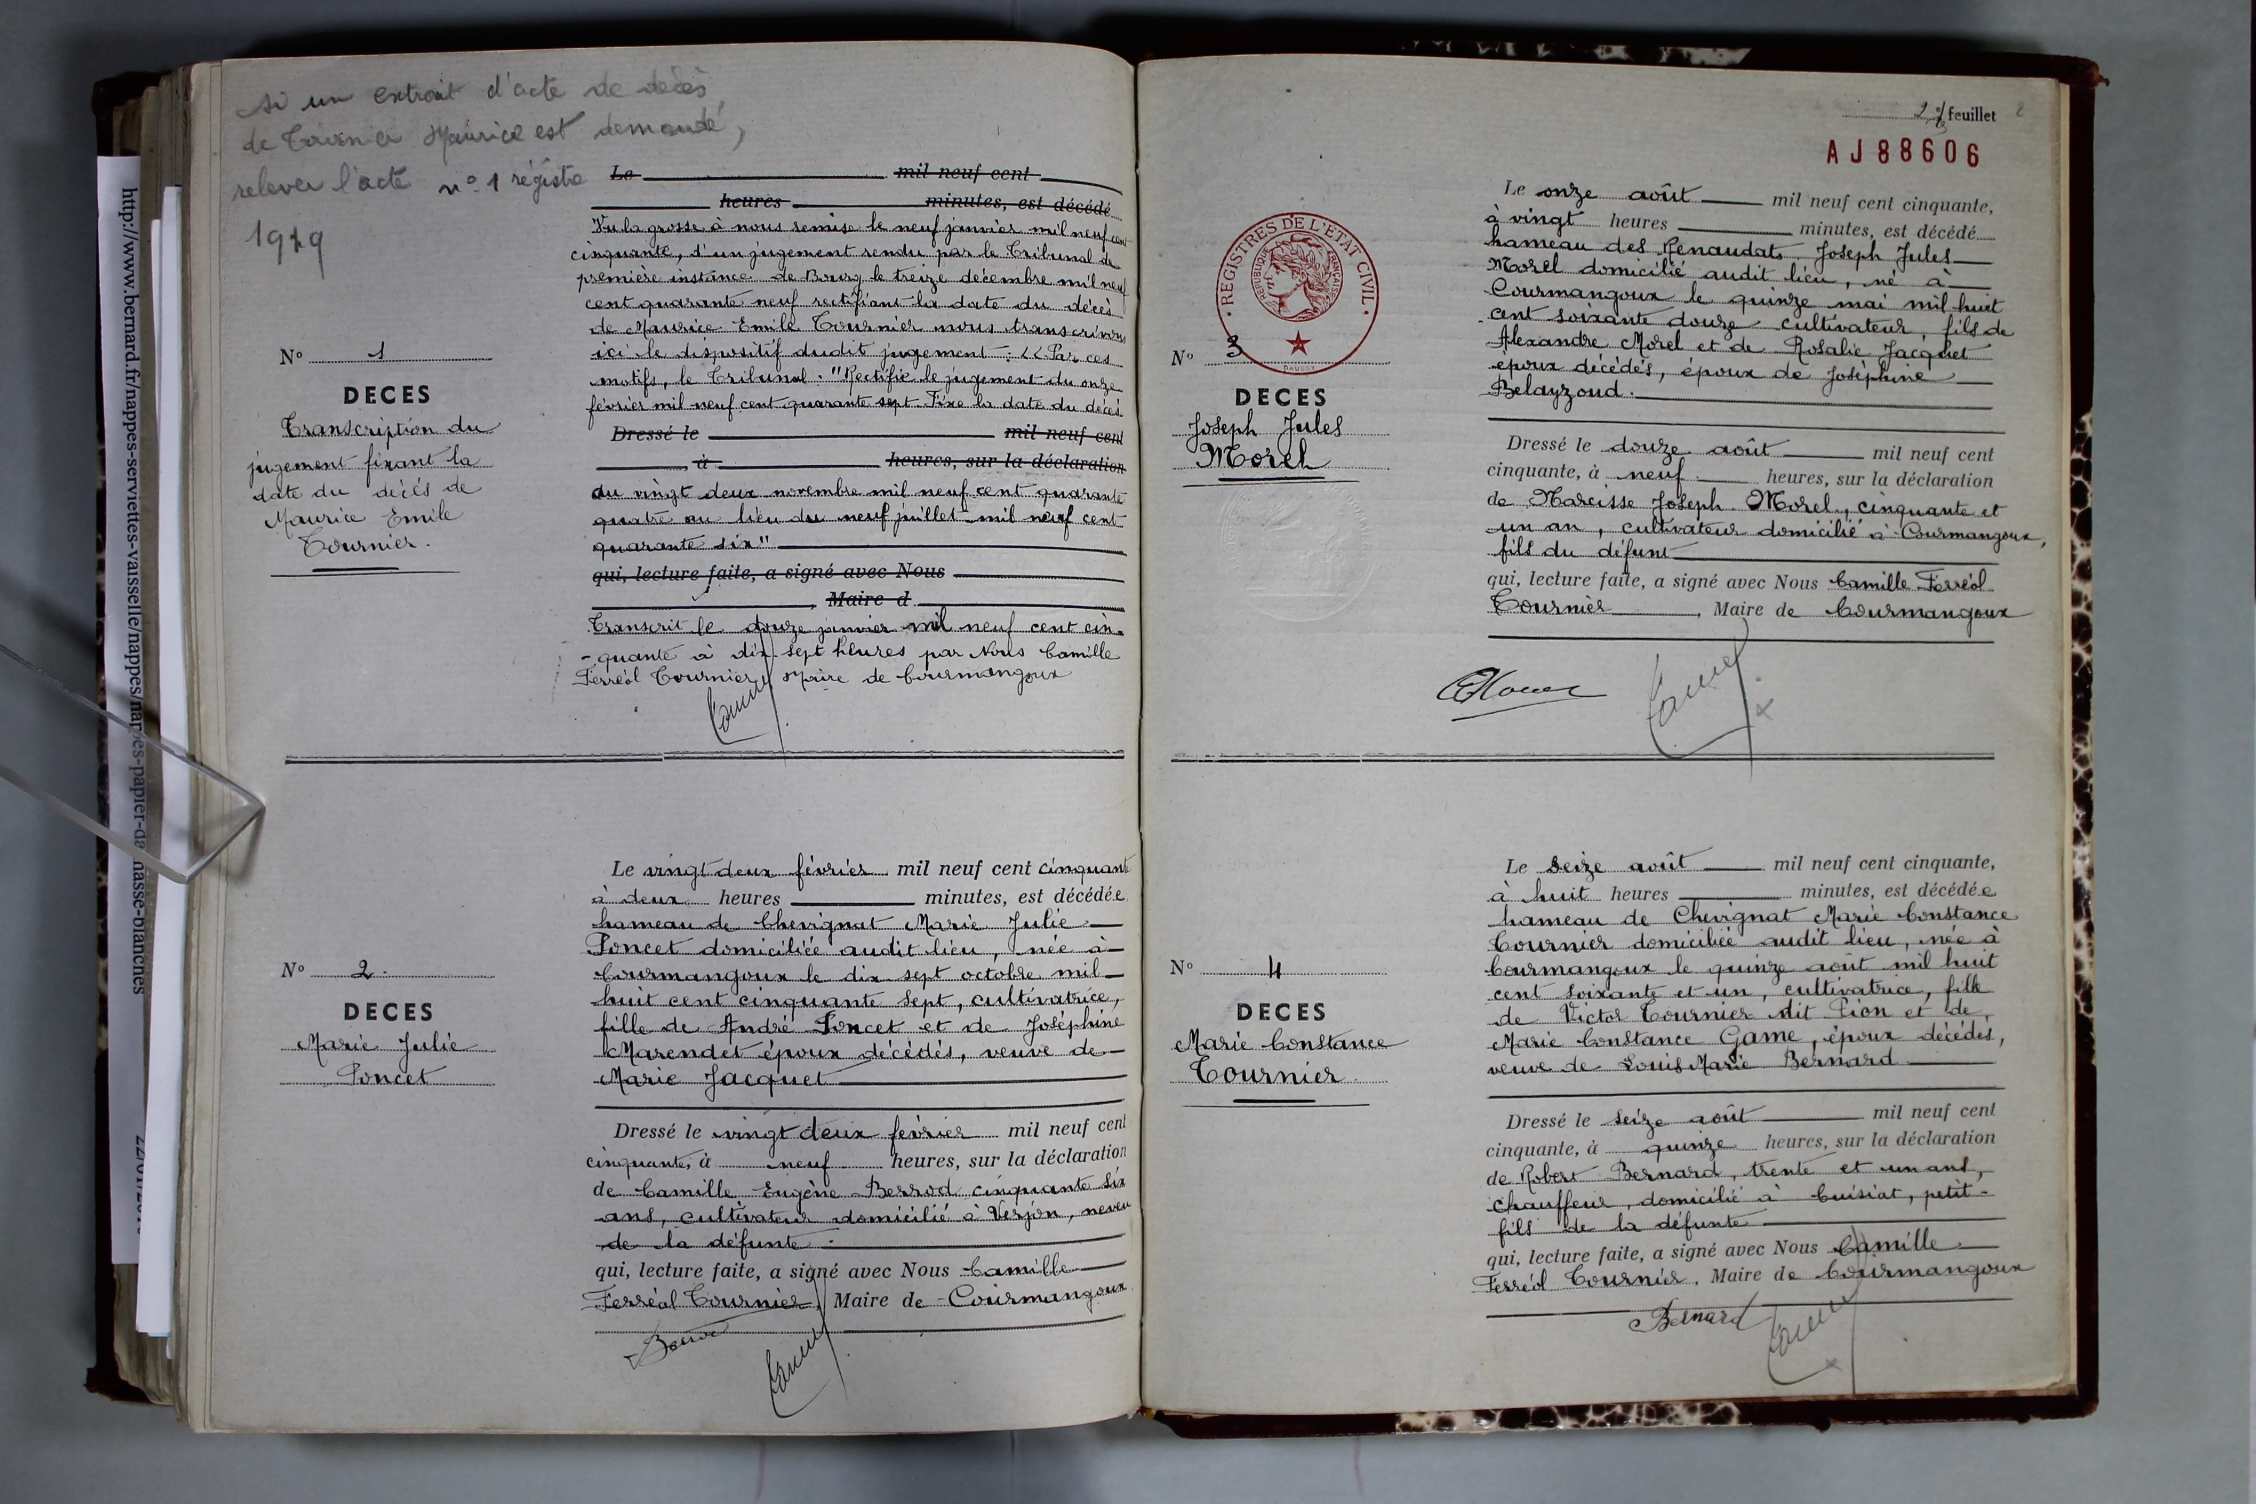 si un extrait d'acte de décès
de Tournier Maurice est demandé,
relever l'acte n° 1 régistre
Le mil neuf cent
heures minutes, est décédé
Vu la grosse à nous remise le neuf janvier mil neuf cent
cinquante, d'un jugement rendu par le Tribunal de
première instance de Bourg le treize décembre mil neuf
cent quarante neuf rectifiant la date du décès
de Maurice Emile Tournier nous transcrivons
ici le dispositif dudit jugement : << Par ces
motifs, le Tribunal. "Rectifie le jugement du onze
février mil neuf cent quarante sept. Fixe la date du décès
Dressé le mil neuf cent
à heures, sur la déclaration
du vingt deux novembre mil neuf cent quarante
quatre au lieu du neuf juillet mil neuf cent
quarante six"
qui, lecture faite, a signé avec Nous
Maire d
Transcrit le douze janvier mil neuf cent cin-
-quante à dix-sept heures par Nous Camille
Ferréol Tournier Maire de Courmangoux
N° 1
DECES
Transcription du
jugement fixant la
date du décès de
Maurice Emile
Tournier.
Le vingt deux février mil neuf cent cinquante
à deux heures minutes, est décédée
hameau de Chevignat Marie Julie
Poncet domiciliée audit lieu, née à
Courmangoux le dix sept octobre mil
huit cent cinquante sept, cultivatrice,
fille de André Poncet et de Joséphine
Marendet époux décédés, veuve de
Marie Jacquet
Dressé le vingt deux février mil neuf cent
cinquante, à neuf heures, sur la déclaration
de Camille Eugène Berrod cinquante six
ans, cultivateur domicilié à Verjon, neveu
de la défunte.
qui, lecture faite, a signé avec Nous Camille
Ferréol Tournier, Maire de Courmangoux
N° 2.
DECES
Marie Julie
Poncet
2e feuillet 2
AJ88606
REGISTRES DE L'ETAT CIVIL
REPUBLIQUE FRANÇAISE
Le onze août mil neuf cent cinquante,
à vingt heures minutes, est décédé
hameau des Renaudats Joseph Jules
Morel domicilié audit lieu, né à
Courmangoux le quinze mai mil huit
cent soixante douze cultivateur, fils de
Alexandre Morel et de Rosalie Jacquet
époux décédés, époux de Joséphine
Belayzoud.
Dressé le douze août mil neuf cent
cinquante, à neuf heures, sur la déclaration
de Narcisse Joseph Morel, cinquante et
un an, cultivateur domicilié à Courmangoux,
fils du défunt
qui, lecture faite, a signé avec Nous Camille Ferréol
Tournier, Maire de Courmangoux
N° 3
DECES
Joseph Jules
Morel
Le seize août mil neuf cent cinquante,
à huit heures minutes, est décédée
hameau de Chevignat Marie Constance
Tournier domiciliée audit lieu, née à
Courmangoux le quinze août mil huit
cent soixante et un, cultivatrice, fille
de Victor Tournier dit Pion et de
Marie Constance Game, époux décédés,
veuve de Louis Marie Bernard
Dressé le seize août mil neuf cent
cinquante, à quinze heures, sur la déclaration
de Robert Bernard, trente et un ans,
chauffeur, domicilié à Cuisiat, petit-
fils de la défunte
qui, lecture faite, a signé avec Nous Camille
Ferréol Tournier, Maire de Courmangoux
Bernard
N° 4
DECES
Marie Constance
Tournier